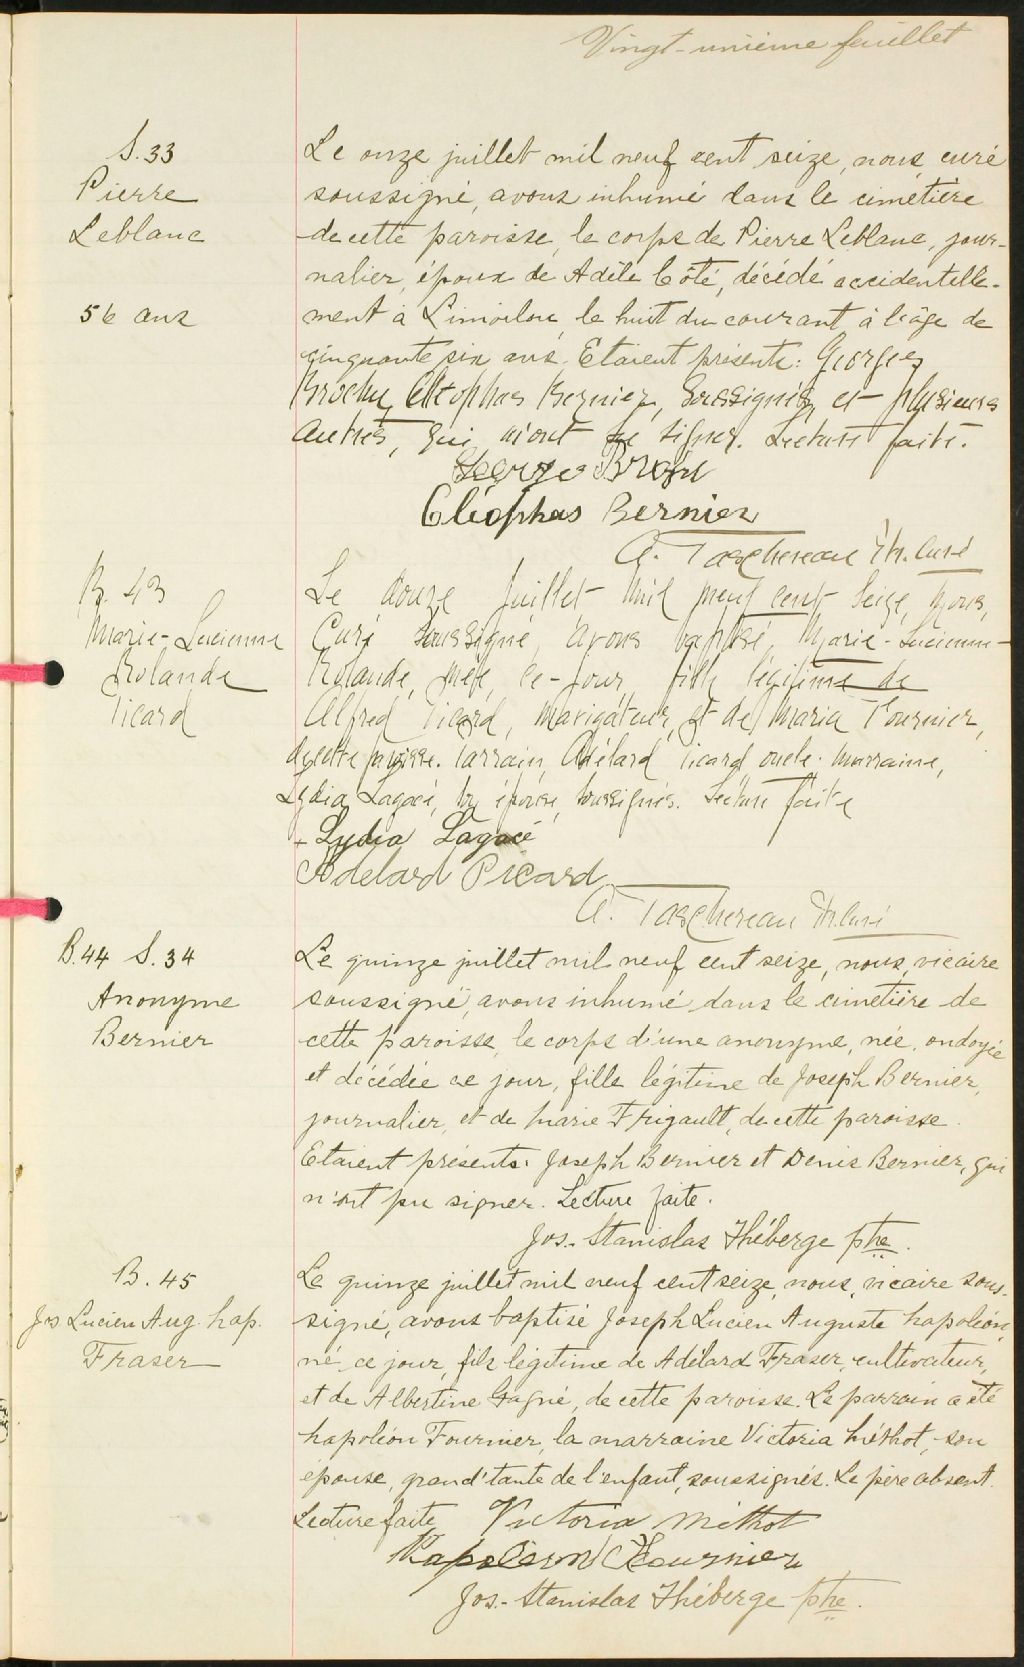 Vingt-unième feuillet
S. 33
Pierre
Leblanc
56 ans
Le onze juillet mil neuf cent seize, nous, curé
soussigné, avons inhumé dans le cimetière
de cette paroisse, le corps de Pierre Leblanc, jour-
nalier, époux de Adèle Côté, décédé accidentelle-
ment à Limoilou, le huit du courant, à l'âge de
cinquante six ans. Etaient présents: Georges
Brochu, Cléophas Bernier, soussignés, et plusieurs
autres, qui n'ont pu signer. Lecture faite.
George
Cléophas Bernier
A. Taschereau Ptr. Curé
B. 43
Marie-Lucienne
Rolande
Picard
Le douze Juillet mil neuf cent seize, nous,
Curé soussigné, avons baptisé, Marie-Lucienne-
Rolande, née, ce-jour, fille légitime de
Alfred Picard, navigateur, et de Maria Fournier,
de cette paroisse. Parrain, Adélard Picard oncle. Marraine,
Lydia Lagacé, son épouse, soussignés. Lecture faite
+ Lydia Lagacé
Adelard Picard
A. Taschereau Ptr. Curé
B. 44 S. 34
Anonyme
Bernier
Le quinze juillet mil neuf cent seize, nous, vicaire
soussigné, avons inhumé dans le cimetière de
cette paroisse, le corps d'une anonyme, née, ondoyée
et décédée ce jour, fille légitime de Joseph Bernier,
journalier, et de Marie Frigault, de cette paroisse.
Etaient présents: Joseph Bernier et Denis Bernier, qui
n'ont pu signer. Lecture faite.
Jos.-Stanislas Théberge ptre.
B. 45
Jos Lucien Aug. Nap.
Fraser
Le quinze juillet mil neuf cent seize, nous, vicaire sous-
signé, avons baptisé Joseph Lucien Auguste Napoléon,
né ce jour, fils légitime de Adélard Fraser, cultivateur,
et de Albertine Gagné, de cette paroisse. Le parrain a été
Napoléon Fournier, la marraine Victoria Méthot, son
épouse, grand'tante de l'enfant, soussignés. Le père absent.
Lecture faite Victoria Méthot
Napoleon Fournier
Jos.-Stanislas Théberge ptre.